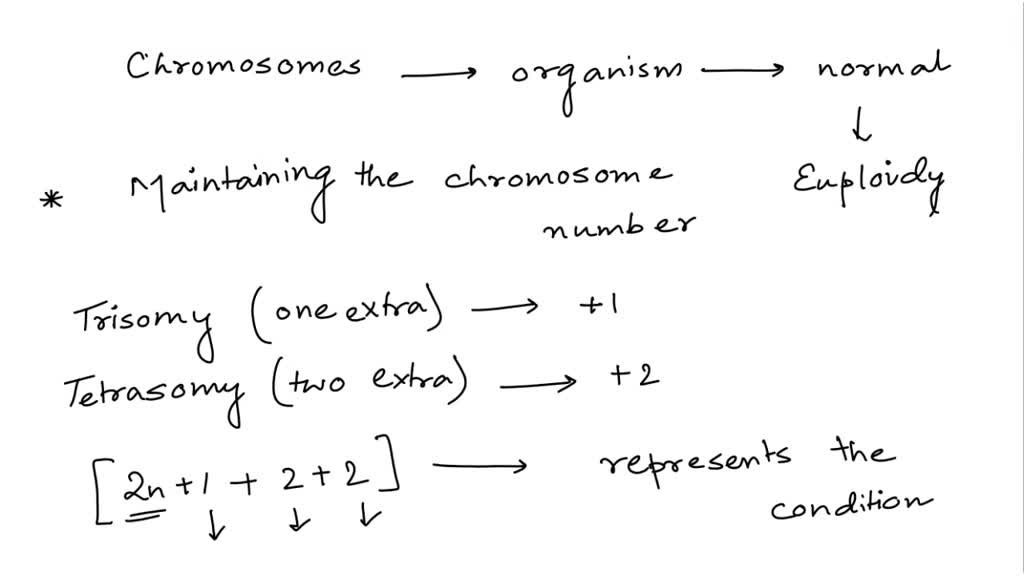 Chromosomes → organism → normal
↓
* Maintaining the chromosome Euploidy
number
Trisomy (one extra) → +1
Tetrasomy (two extra) → +2
[2n +1 + 2 + 2] → represents the
↓ ↓ ↓ condition